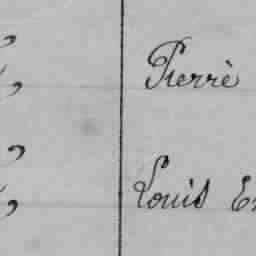 Pierre
Louis